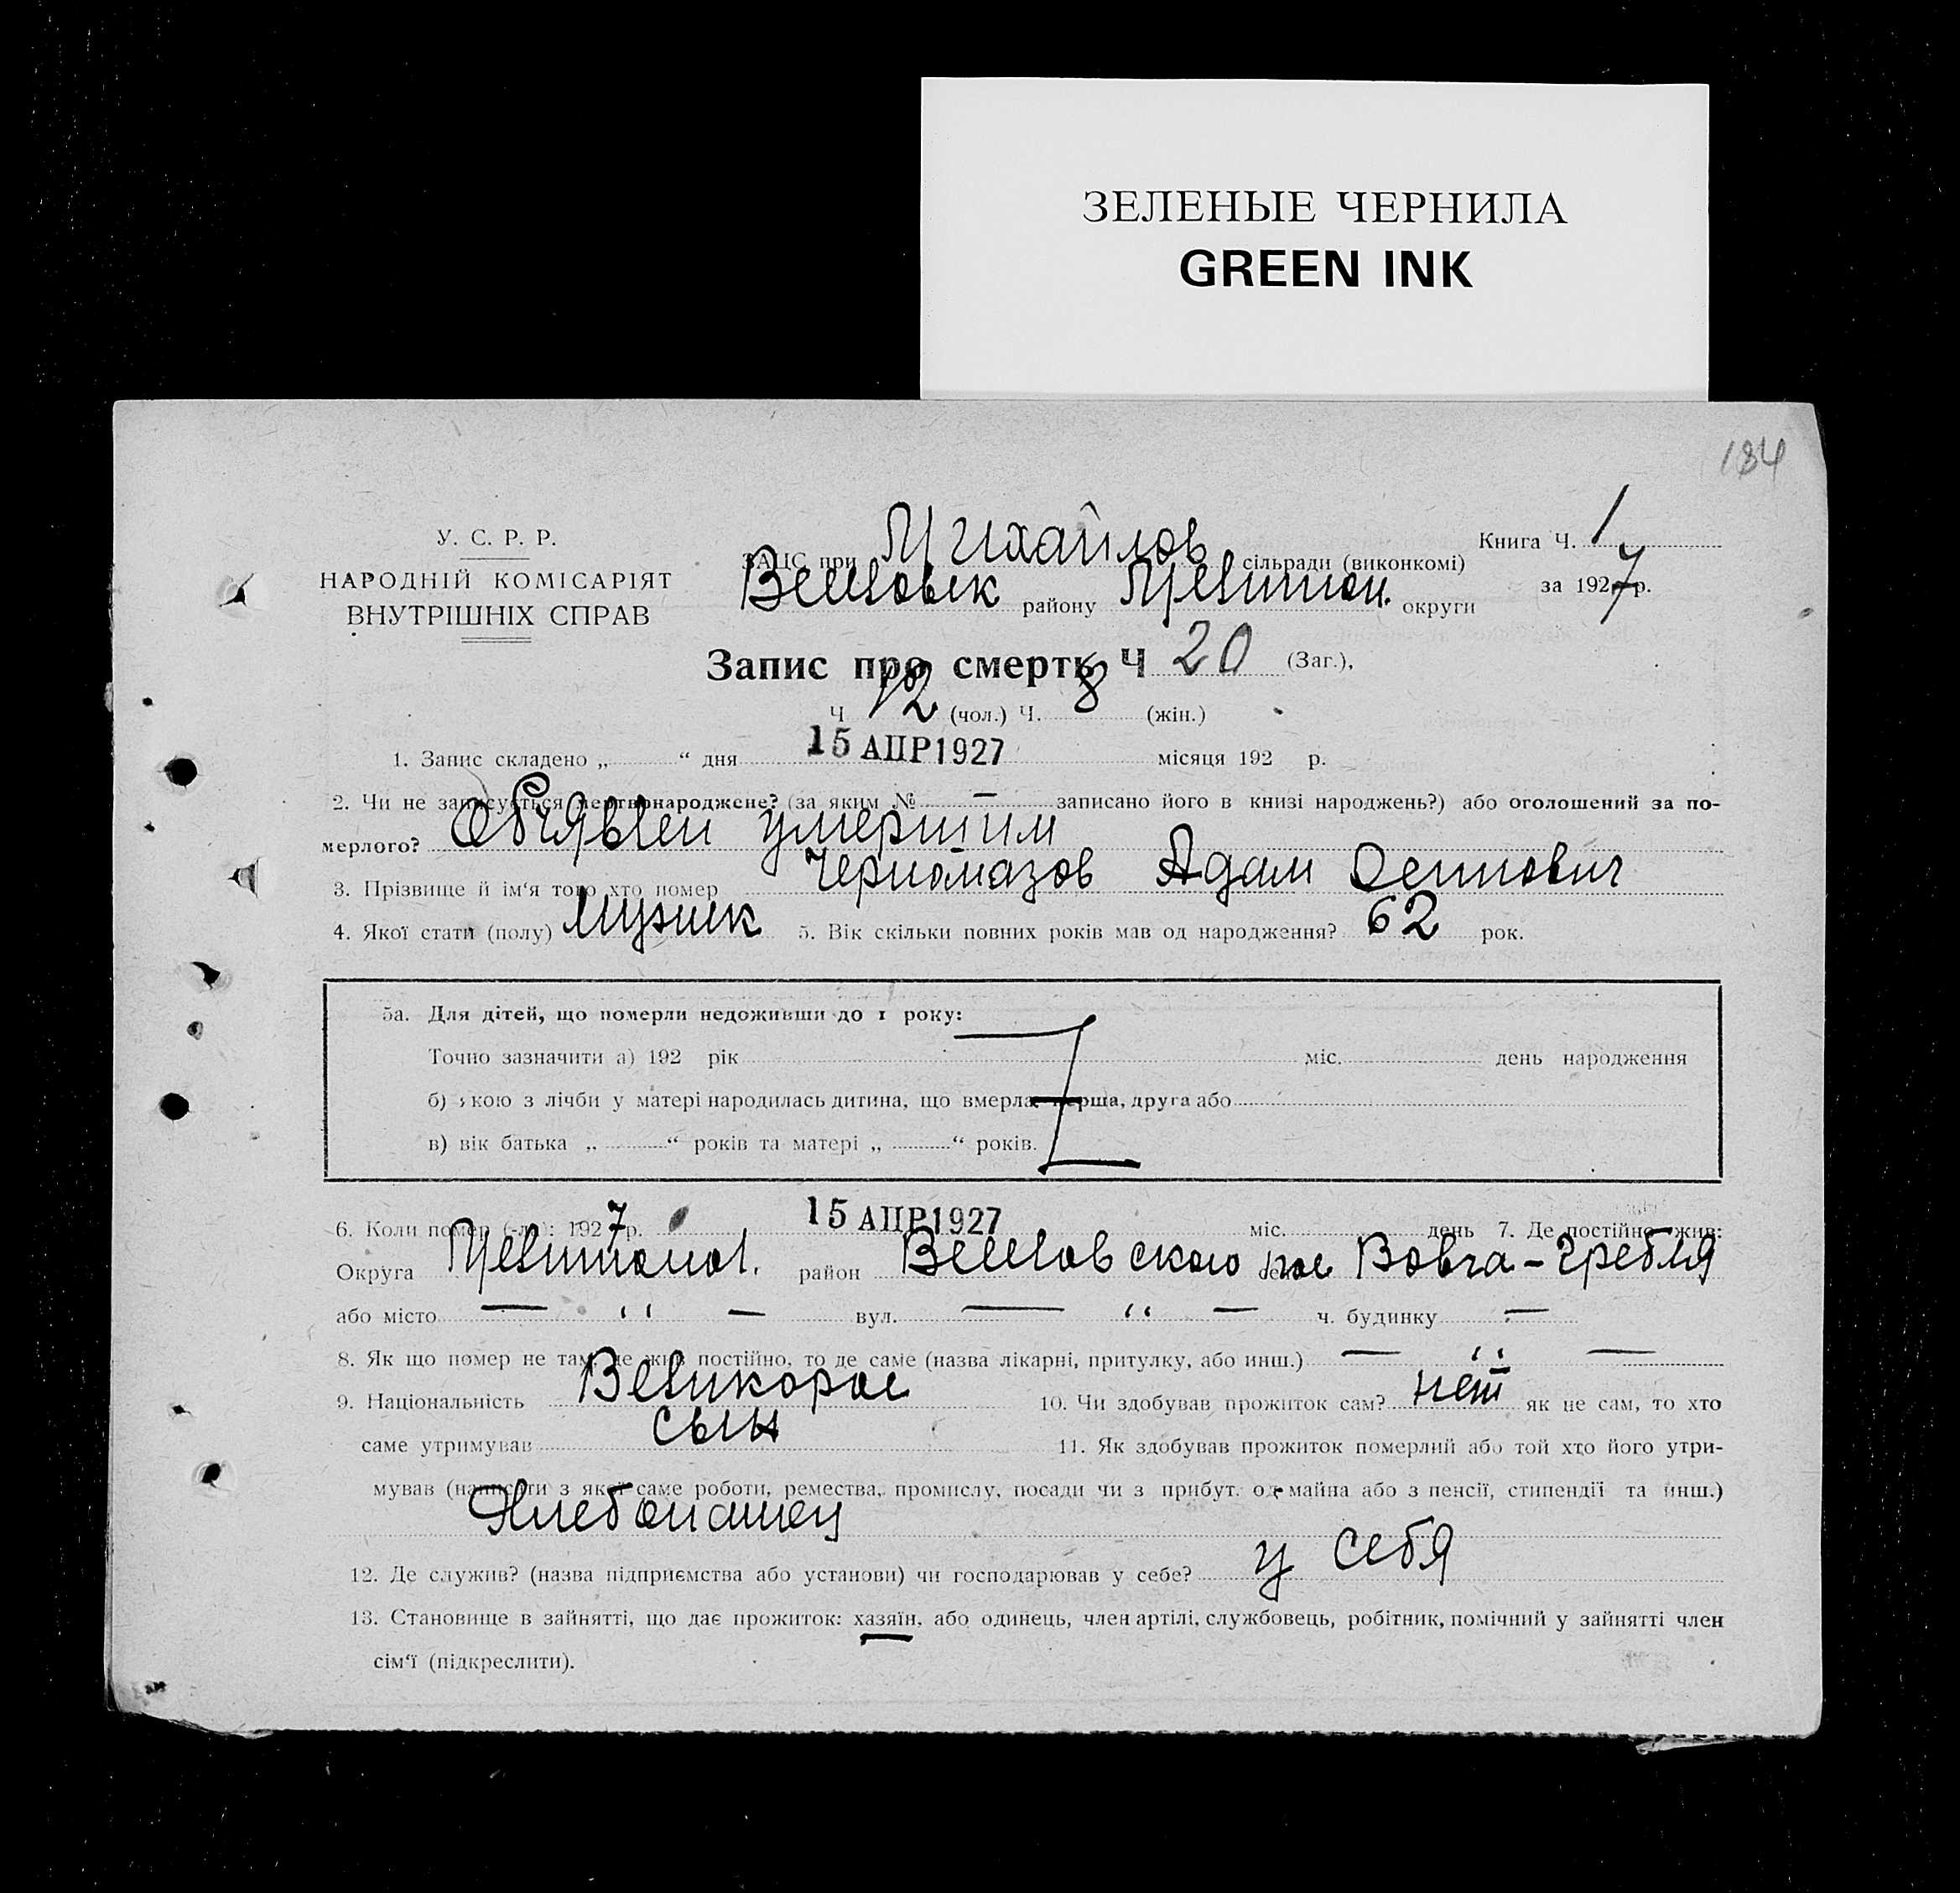 ЗЕЛЕНЫЕ ЧЕРНИЛА
GREEN INK
184
У. С. Р. Р.
НАРОДНІЙ КОМІСАРІЯТ
ВНУТРІШНІХ СПРАВ
ЗАЦС при Михайлов сільради (виконкомі)
району округи
Книга Ч. 1
за 1927 р.
Запис про смерть Ч 20 (Заг.),
Ч 12 (чол.) Ч. 8 (жін.)
1. Запис складено „ “ дня 15 АПР 1927 місяця 192 р.
2. Чи не записується мертвонароджене? (за яким № — записано його в книзі народжень?) або оголошений за по-
мерлого? умершим
3. Прізвище й ім‘я того хто помер Черномазов Адам Осипович
4. Якої стати (полу) 5. Вік скільки повних років мав од народження? 62 рок.
5а. Для дітей, що померли недоживши до 1 року:
Точно зазначити а) 192 рік міс. день народження
б) якою з лічби у матері народилась дитина, що вмерла: перша, друга або
в) вік батька „ “ років та матері „ “ років.
6. Коли помер (-ла): 1927 р. 15 АПР 1927 міс. день 7. Де постійно жив:
Округа район пос Вовча-Гребля
або місто — „ — вул. — „ — ч. будинку —
8. Як що помер не там, де жив постійно, то де саме (назва лікарні, притулку, або инш.) — „ —
9. Національність Великорос 10. Чи здобував прожиток сам? нет як не сам, то хто
саме утримував сын 11. Як здобував прожиток померлий або той хто його утри-
мував (написати з якої саме роботи, ремества, промислу, посади чи з прибут. од майна або з пенсії, стипендії та инш.)
Хлебопашец
12. Де служив? (назва підприємства або установи) чи господарював у себе? у себя
13. Становище в зайнятті, що дає прожиток: хазяїн, або одинець, член артілі, службовець, робітник, помічний у зайнятті член
сім‘ї (підкреслити).